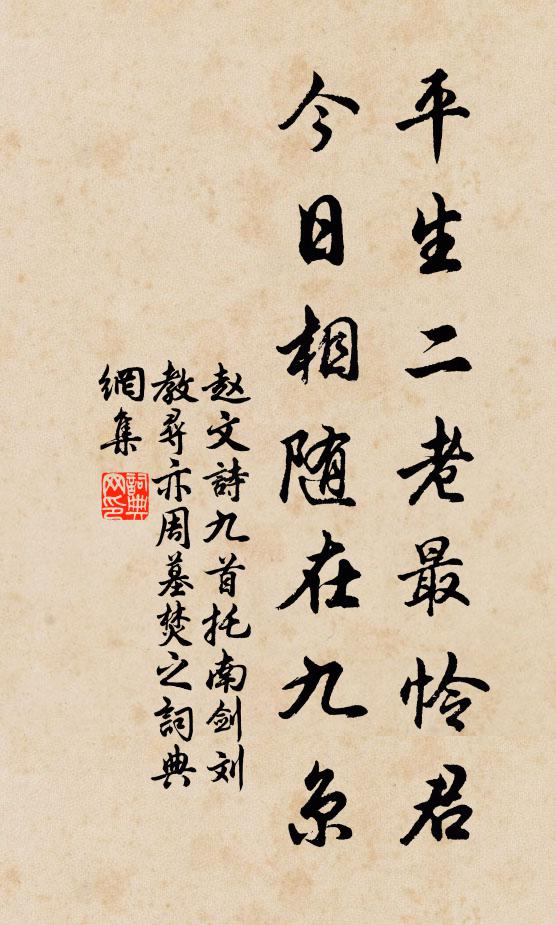 平生二老最怜君
今日相随在九京
赵文詩九首托南剑刘
教尋亦周墓焚之詞典
網集
詞典網印